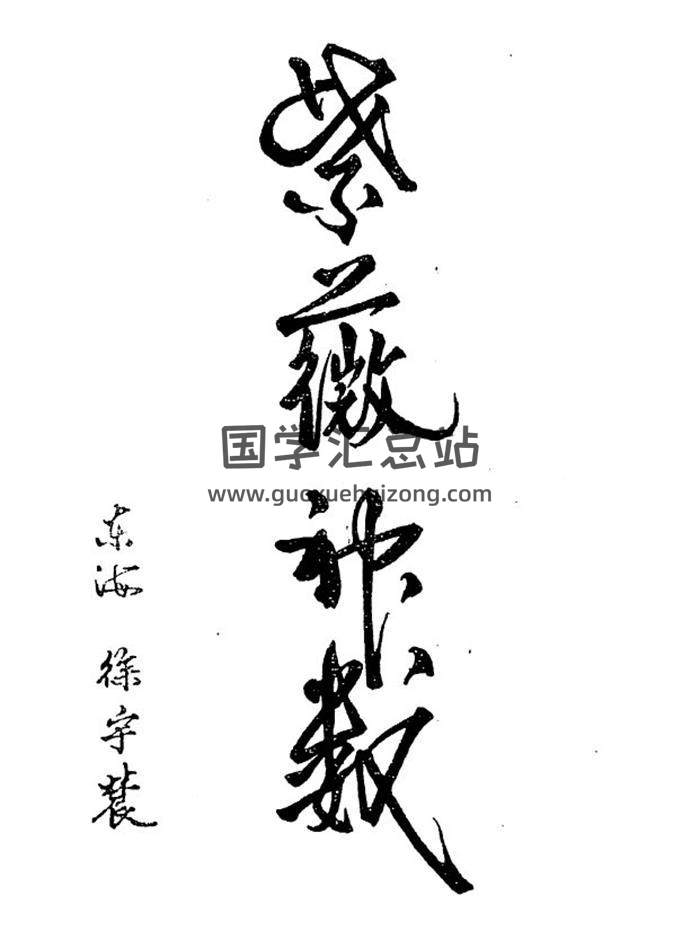 紫薇神数
东海 徐宇辳
国学汇总站
www.guoxuehuizong.com